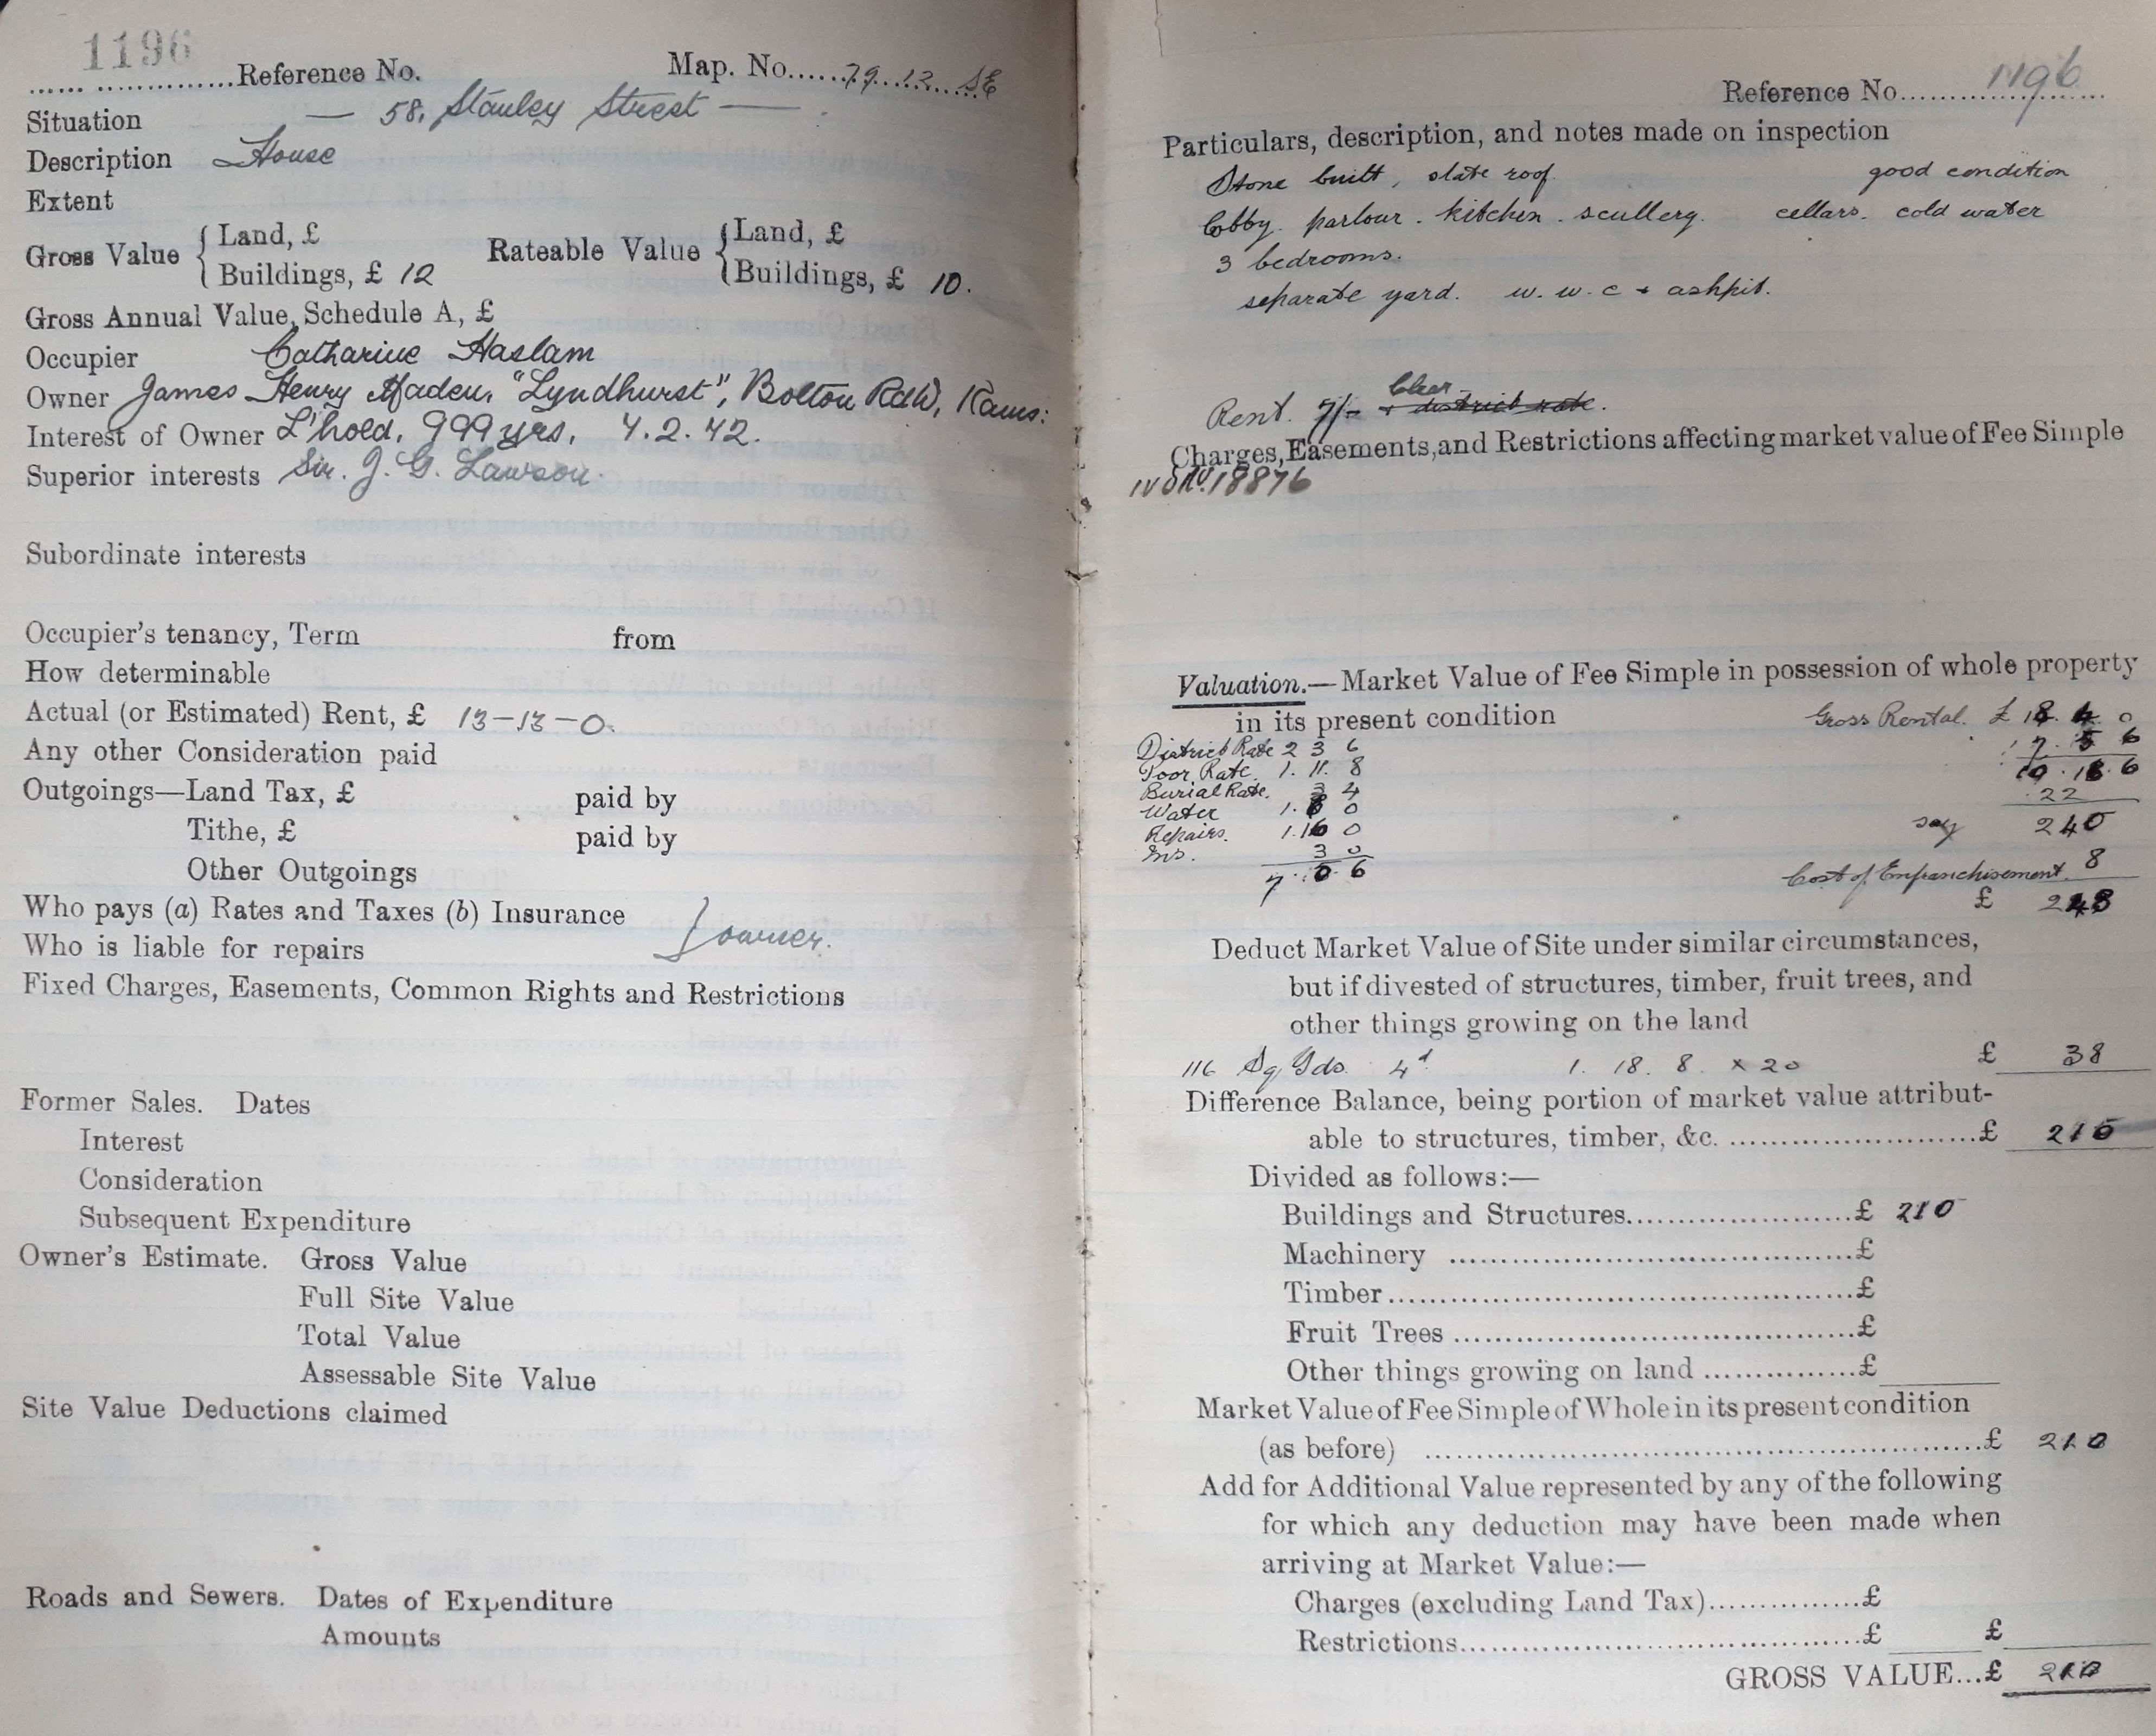 1196
Reference No. Map. No. 79. 12. SE
Situation — 58, Stanley Street —
Description House
Extent
Gross Value { Land, £ Rateable Value { Land, £
Buildings, £ 12 Buildings, £ 10.
Gross Annual Value, Schedule A, £
Occupier Catharine Haslam
Owner James Henry Maden, "Lyndhurst", Bolton Rd W, Rams:
Interest of Owner L'hold, 999 yrs, 4.2.42.
Superior interests Sir. J. G. Lawson.
Subordinate interests
Occupier's tenancy, Term from
How determinable
Actual (or Estimated) Rent, £ 13-13-0.
Any other Consideration paid
Outgoings—Land Tax, £ paid by
Tithe, £ paid by
Other Outgoings
Who pays (a) Rates and Taxes (b) Insurance
} owner.
Who is liable for repairs
Fixed Charges, Easements, Common Rights and Restrictions
Former Sales. Dates
Interest
Consideration
Subsequent Expenditure
Owner's Estimate. Gross Value
Full Site Value
Total Value
Assessable Site Value
Site Value Deductions claimed
Roads and Sewers. Dates of Expenditure
Amounts
Reference No. 1196
Particulars, description, and notes made on inspection
Stone built, slate roof. good condition
lobby. parlour. kitchen. scullery. cellars. cold water
3 bedrooms.
separate yard. w. w. c + ashpit.
Clear
Rent. 7/- + district rate.
Charges, Easements, and Restrictions affecting market value of Fee Simple
18876
Valuation.—Market Value of Fee Simple in possession of whole property
in its present condition Gross Rental. £ 18. 4. 0
District Rate 2 3 6
Poor Rate. 1. 11. 8
Burial Rate. 3 4
Water 1. 0
Repairs. 1. 0
Ins. 3 0
7. 0. 6
22
say 240
Cost of Enfranchisement. 8
£ 248
Deduct Market Value of Site under similar circumstances,
but if divested of structures, timber, fruit trees, and
other things growing on the land
116 Sq Yds. 4d 1. 18. 8 × 20 £ 38
Difference Balance, being portion of market value attribut-
able to structures, timber, &c. £ 210
Divided as follows:—
Buildings and Structures £ 210
Machinery £
Timber £
Fruit Trees £
Other things growing on land £
Market Value of Fee Simple of Whole in its present condition
(as before) £
Add for Additional Value represented by any of the following
for which any deduction may have been made when
arriving at Market Value:—
Charges (excluding Land Tax) £
Restrictions £ £
GROSS VALUE...£